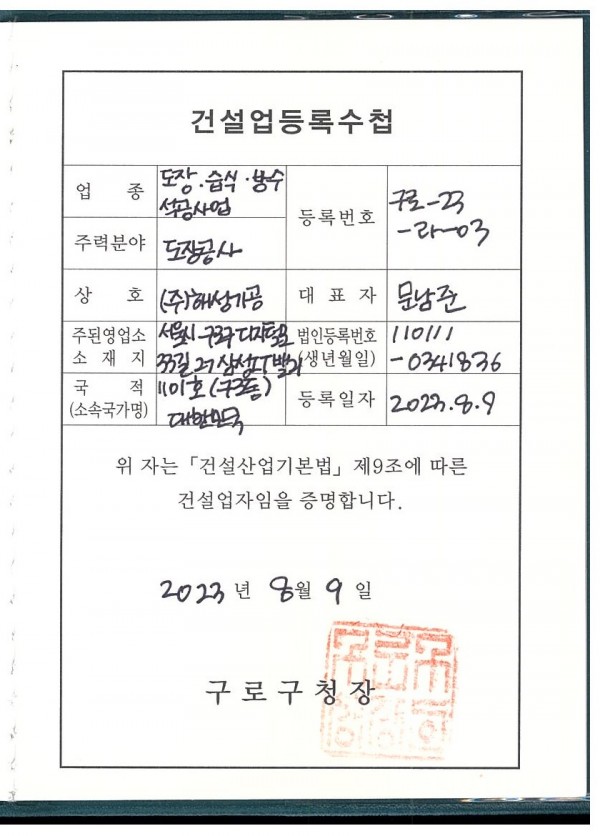 건설업등록수첩
업 종 도장·습식·방수 석공사업
등록번호 구로-23 -라-03
주력분야 도장공사
상 호 (주)해성기공
대 표 자 문남준
주된영업소 소 재 지 서울시 구로구 디지털로 33길 27 삼성IT밸리 1101호 (구로동)
법인등록번호 (생년월일) 110111 -0341836
국 적 (소속국가명) 대한민국
등록일자 2023.8.9
위 자는 「건설산업기본법」 제9조에 따른
건설업자임을 증명합니다.
2023 년 8월 9 일
구로구청장